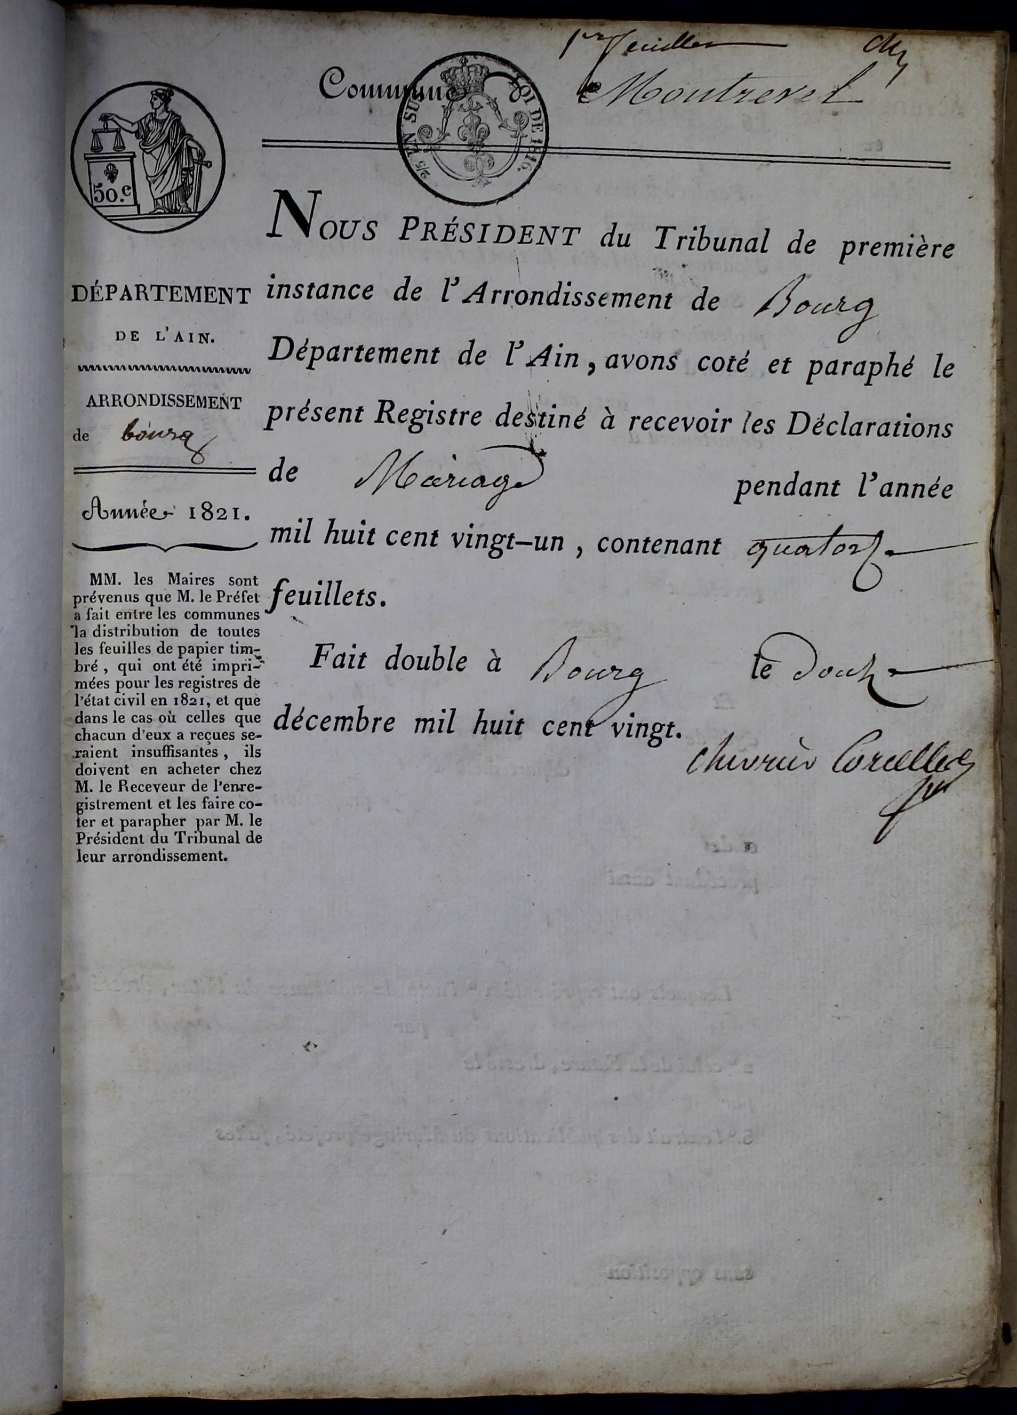 1er feuillet
Commune de Montrevel
EN SUS
LOI DE 1816.
50.c
NOUS PRÉSIDENT du Tribunal de première
instance de l'Arrondissement de Bourg
Département de l'Ain, avons coté et paraphé le
présent Registre destiné à recevoir les Déclarations
de Mariage pendant l'année
mil huit cent vingt-un, contenant quatorze
feuillets.
Fait double à Bourg le douze
décembre mil huit cent vingt.
Chevrier Corcelles
DÉPARTEMENT
DE L'AIN.
ARRONDISSEMENT
de bourg
Année 1821.
MM. les Maires sont
prévenus que M. le Préfet
a fait entre les communes
la distribution de toutes
les feuilles de papier tim-
bré, qui ont été impri-
mées pour les registres de
l'état civil en 1821, et que
dans le cas où celles que
chacun d'eux a reçues se-
raient insuffisantes, ils
doivent en acheter chez
M. le Receveur de l'enre-
gistrement et les faire co-
ter et parapher par M. le
Président du Tribunal de
leur arrondissement.